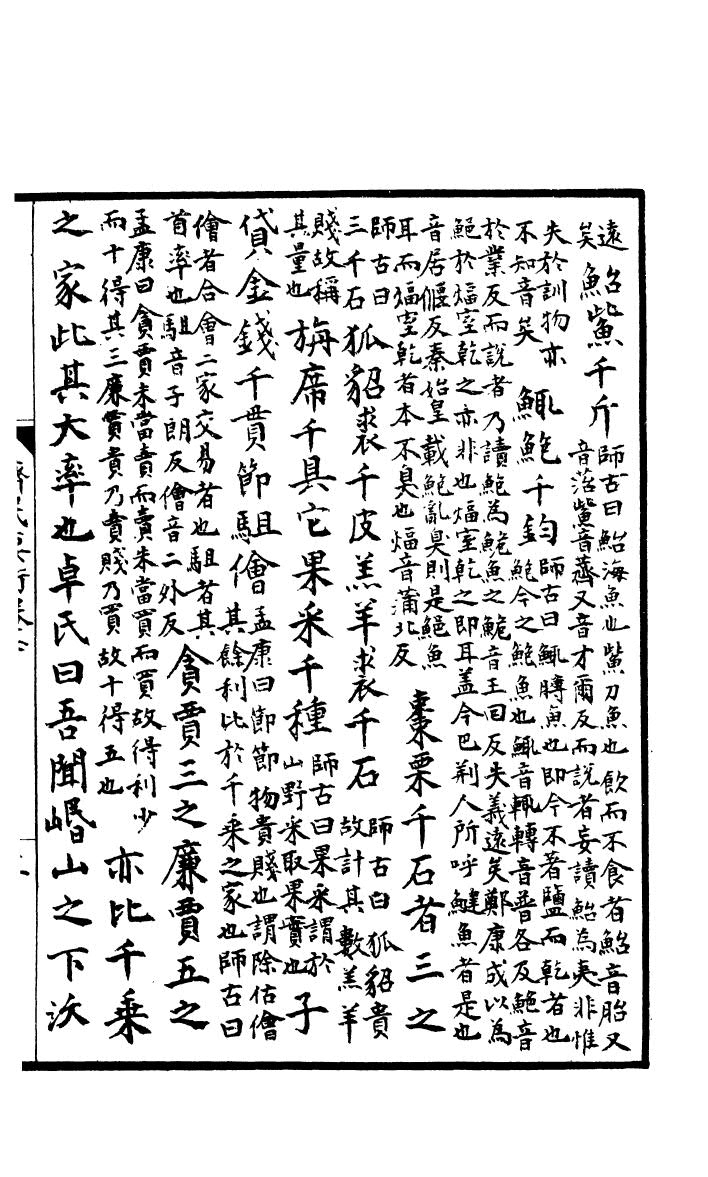 遠矣鮐鮆千斤師古曰鮐海魚也鮆刀魚也飲而不食者鮐音胎又音落鮆音薺又音才爾反而說者妄讀鮐為夷非惟
失於訓物亦不知音矣鮿鮑千鈞師古曰鮿膞魚也即今不著鹽而乾者也鮑今之鮑魚也鮿音輒轉音普各反鮑音
於業反而說者乃讀鮑為鮠魚之鮠音王回反失義遠矣鄭康成以為鮑於煏室乾之亦非也煏室乾之即耳蓋今巴荊人所呼鰎魚者是也
音居偃反秦始皇載鮑亂臭則是鮑魚耳而煏室乾者本不臭也煏音蒲北反棗栗千石者三之
師古曰三千石狐貂裘千皮羔羊裘千石師古曰狐貂貴故計其數羔羊
賤故稱其量也旃席千具它果采千種師古曰果采謂於山野采取果實也子
貸金錢千貫節駔儈孟康曰節節物貴賤也謂除估儈其餘利比於千乘之家也師古曰
儈者合會二家交易者也駔者其首率也駔音子朗反儈音二外反貪賈三之廉賈五之
孟康曰貪賈未當賣而賣未當買而買故得利少而十得其三廉賈貴乃賣賤乃買故十得五也亦比千乘
之家此其大率也卓氏曰吾聞岷山之下沃